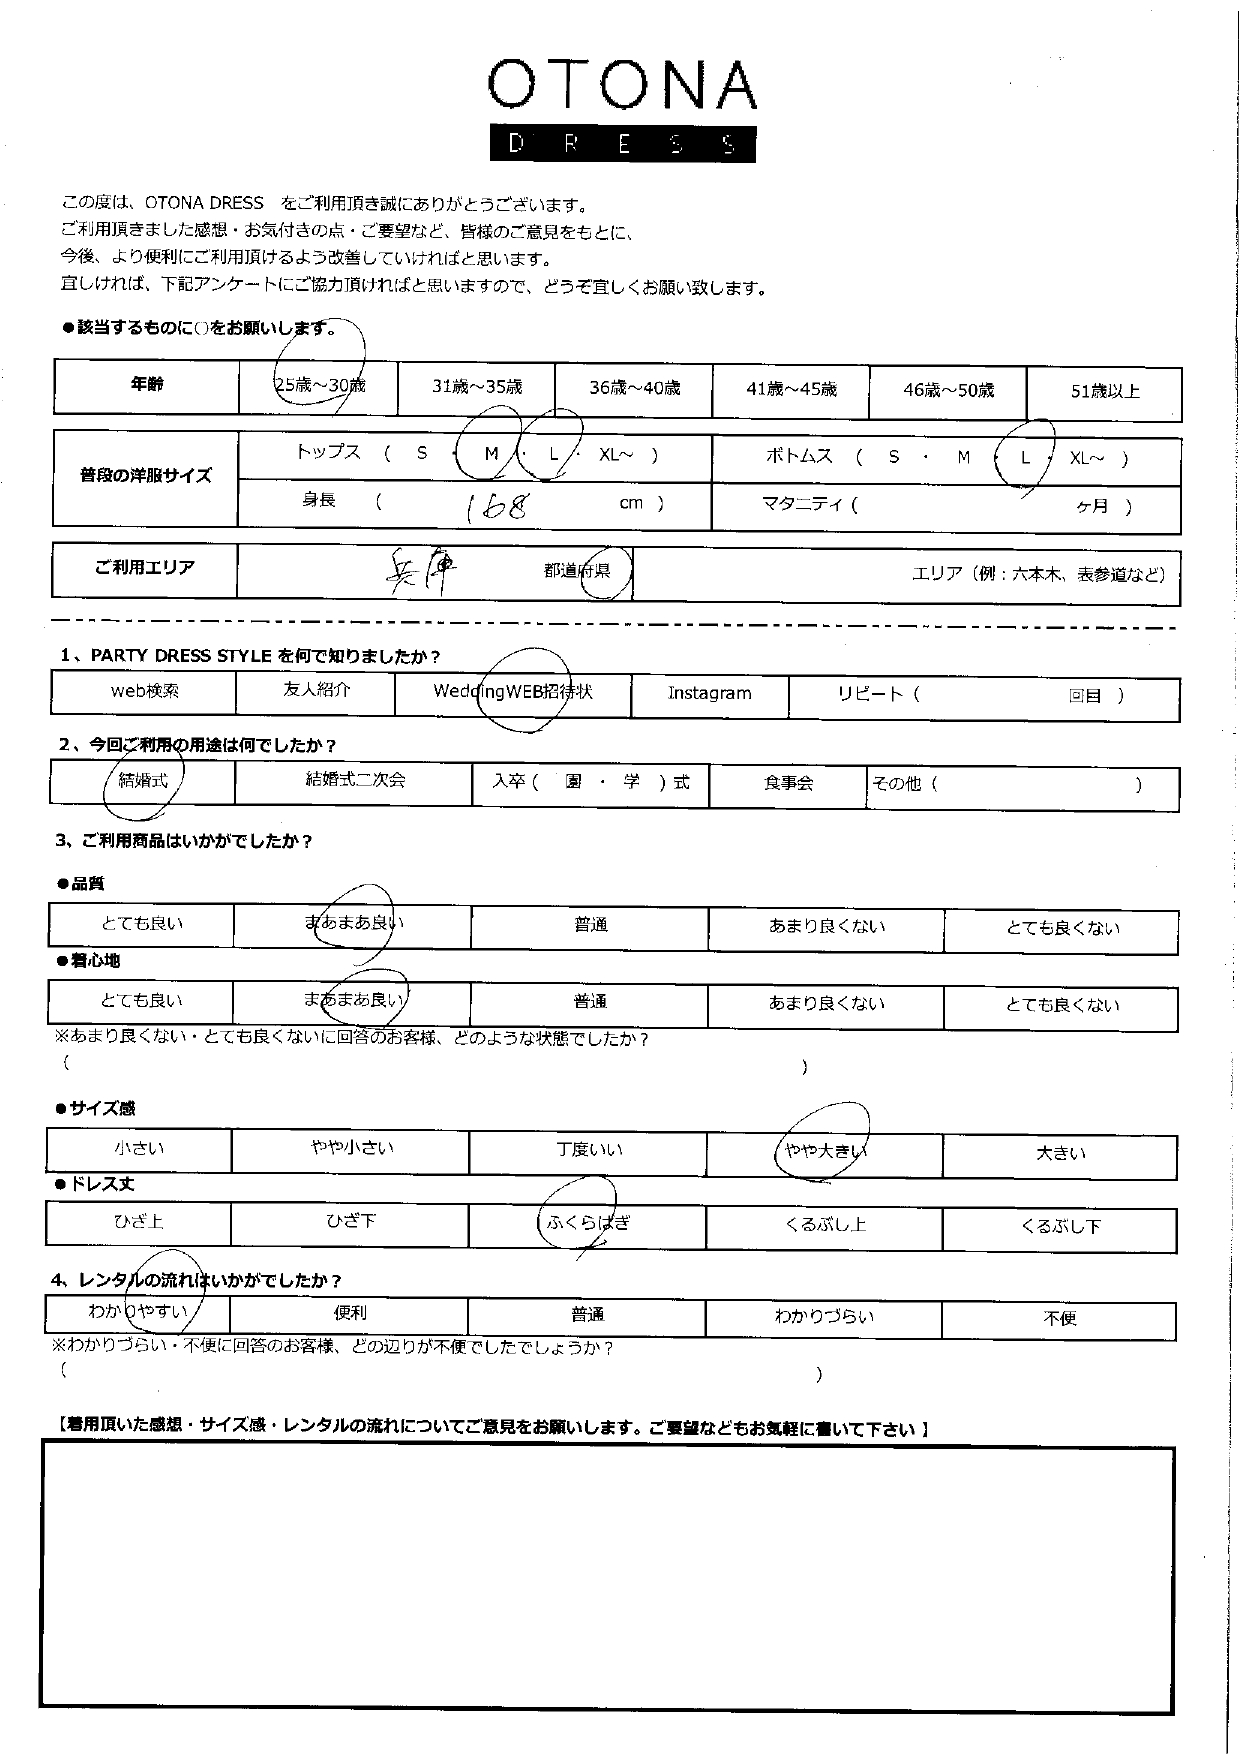 OTONA
DRESS
この度は、OTONA DRESS　をご利用頂き誠にありがとうございます。
ご利用頂きました感想・お気付きの点・ご要望など、皆様のご意見をもとに、
今後、より便利にご利用頂けるよう改善していければと思います。
宜しければ、下記アンケートにご協力頂ければと思いますので、どうぞ宜しくお願い致します。
●該当するものに○をお願いします。
年齢 25歳～30歳 31歳～35歳 36歳～40歳 41歳～45歳 46歳～50歳 51歳以上
普段の洋服サイズ
トップス （ S ・ M ・ L ・ XL～ ） ボトムス （ S ・ M ・ L ・ XL～ ）
身長 （ 168 cm ） マタニティ（ ヶ月 ）
ご利用エリア 兵庫 都道府県 エリア（例：六本木、表参道など）
1、PARTY DRESS STYLE を何で知りましたか？
web検索 友人紹介 WeddingWEB招待状 Instagram リピート（ 回目 ）
2、今回ご利用の用途は何でしたか？
結婚式 結婚式二次会 入卒（ 園 ・ 学 ）式 食事会 その他（ ）
3、ご利用商品はいかがでしたか？
●品質
とても良い まあまあ良い 普通 あまり良くない とても良くない
●着心地
とても良い まあまあ良い 普通 あまり良くない とても良くない
※あまり良くない・とても良くないに回答のお客様、どのような状態でしたか？
（ ）
●サイズ感
小さい やや小さい 丁度いい やや大きい 大きい
●ドレス丈
ひざ上 ひざ下 ふくらはぎ くるぶし上 くるぶし下
4、レンタルの流れはいかがでしたか？
わかりやすい 便利 普通 わかりづらい 不便
※わかりづらい・不便に回答のお客様、どの辺りが不便でしたでしょうか？
（ ）
【着用頂いた感想・サイズ感・レンタルの流れについてご意見をお願いします。ご要望などもお気軽に書いて下さい 】